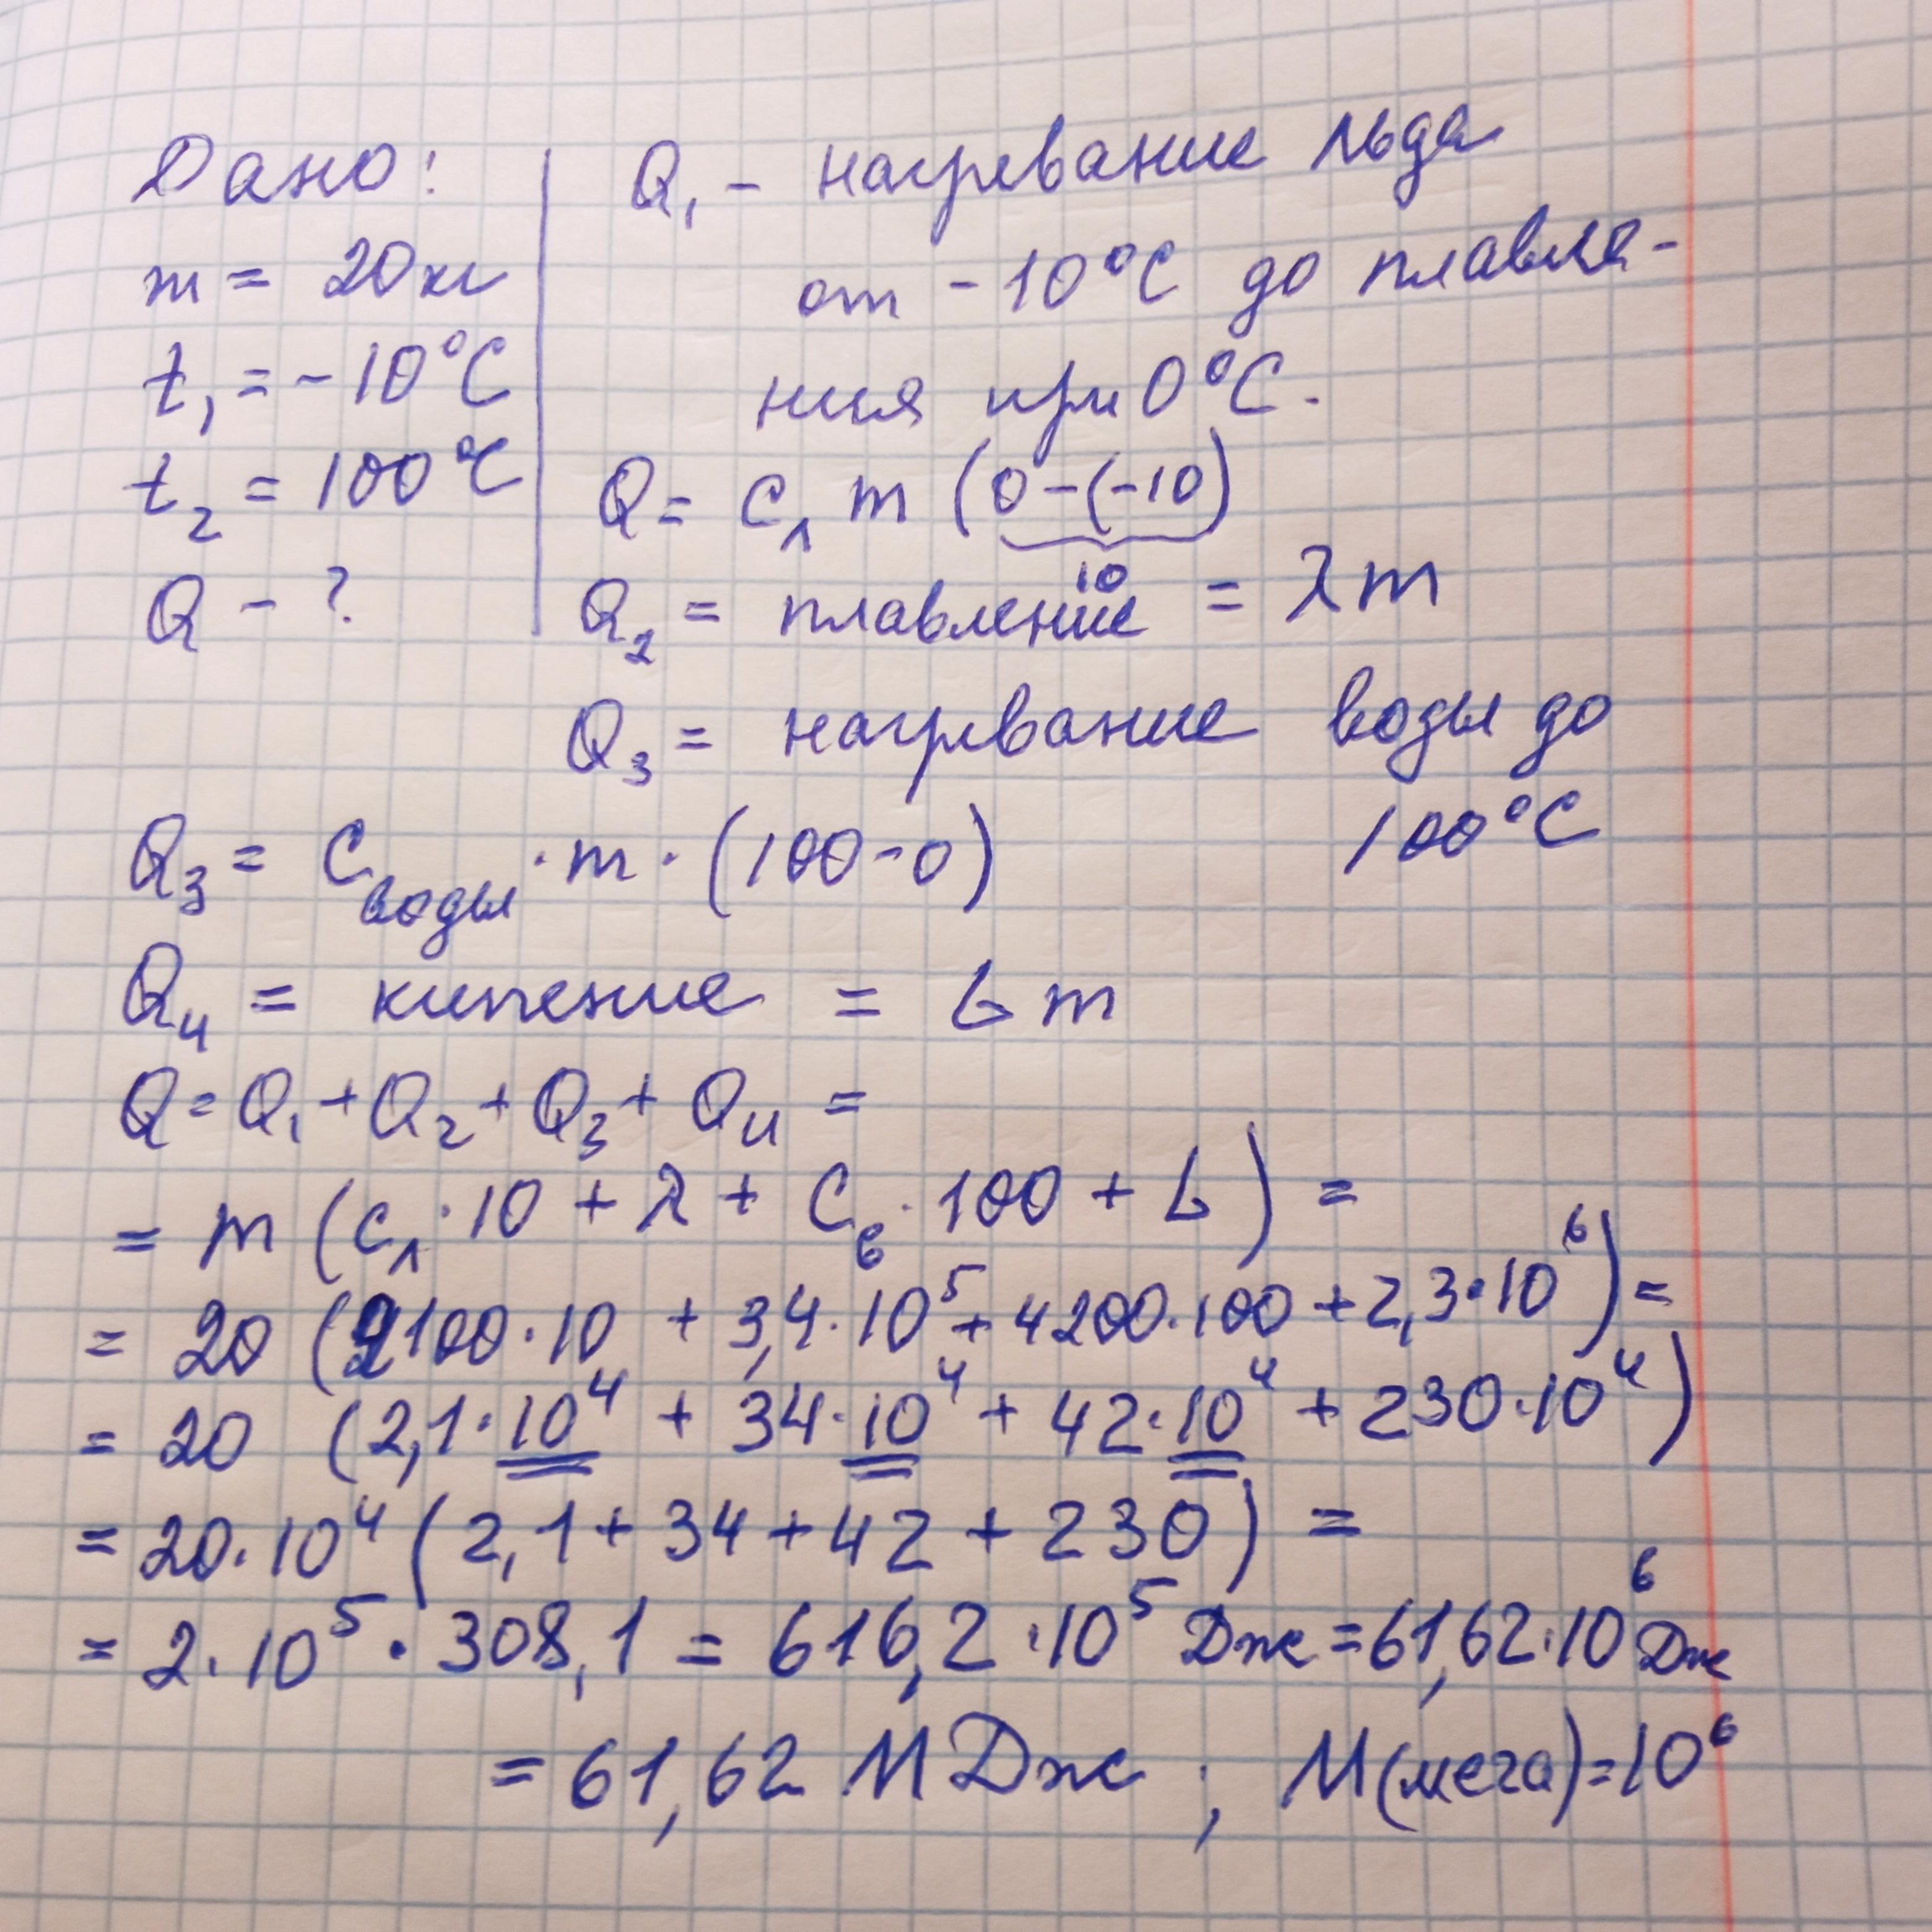 Дано:
m = 20кг
t₁ = -10°C
t₂ = 100°C
Q - ?
Q₁ - нагревание льда
от -10°C до плавле-
ния при 0°C.
Q = c₁ m (0-(-10)
10
Q₂ = плавление = λm
Q₃ = нагревание воды до
100°C
Q₃ = C воды · m · (100-0)
Q₄ = кипение = L m
Q = Q₁ + Q₂ + Q₃ + Q₄ =
= m (c₁ · 10 + λ + Cв · 100 + L) =
= 20 (2100·10 + 3,4·10⁵ + 4200·100 + 2,3·10⁶) =
= 20 (2,1·10⁴ + 34·10⁴ + 42·10⁴ + 230·10⁴)
= 20·10⁴ (2,1 + 34 + 42 + 230) =
= 2·10⁵ · 308,1 = 616,2 ·10⁵ Дж = 61,62·10⁶ Дж
= 61,62 МДж ; М(мега)=10⁶